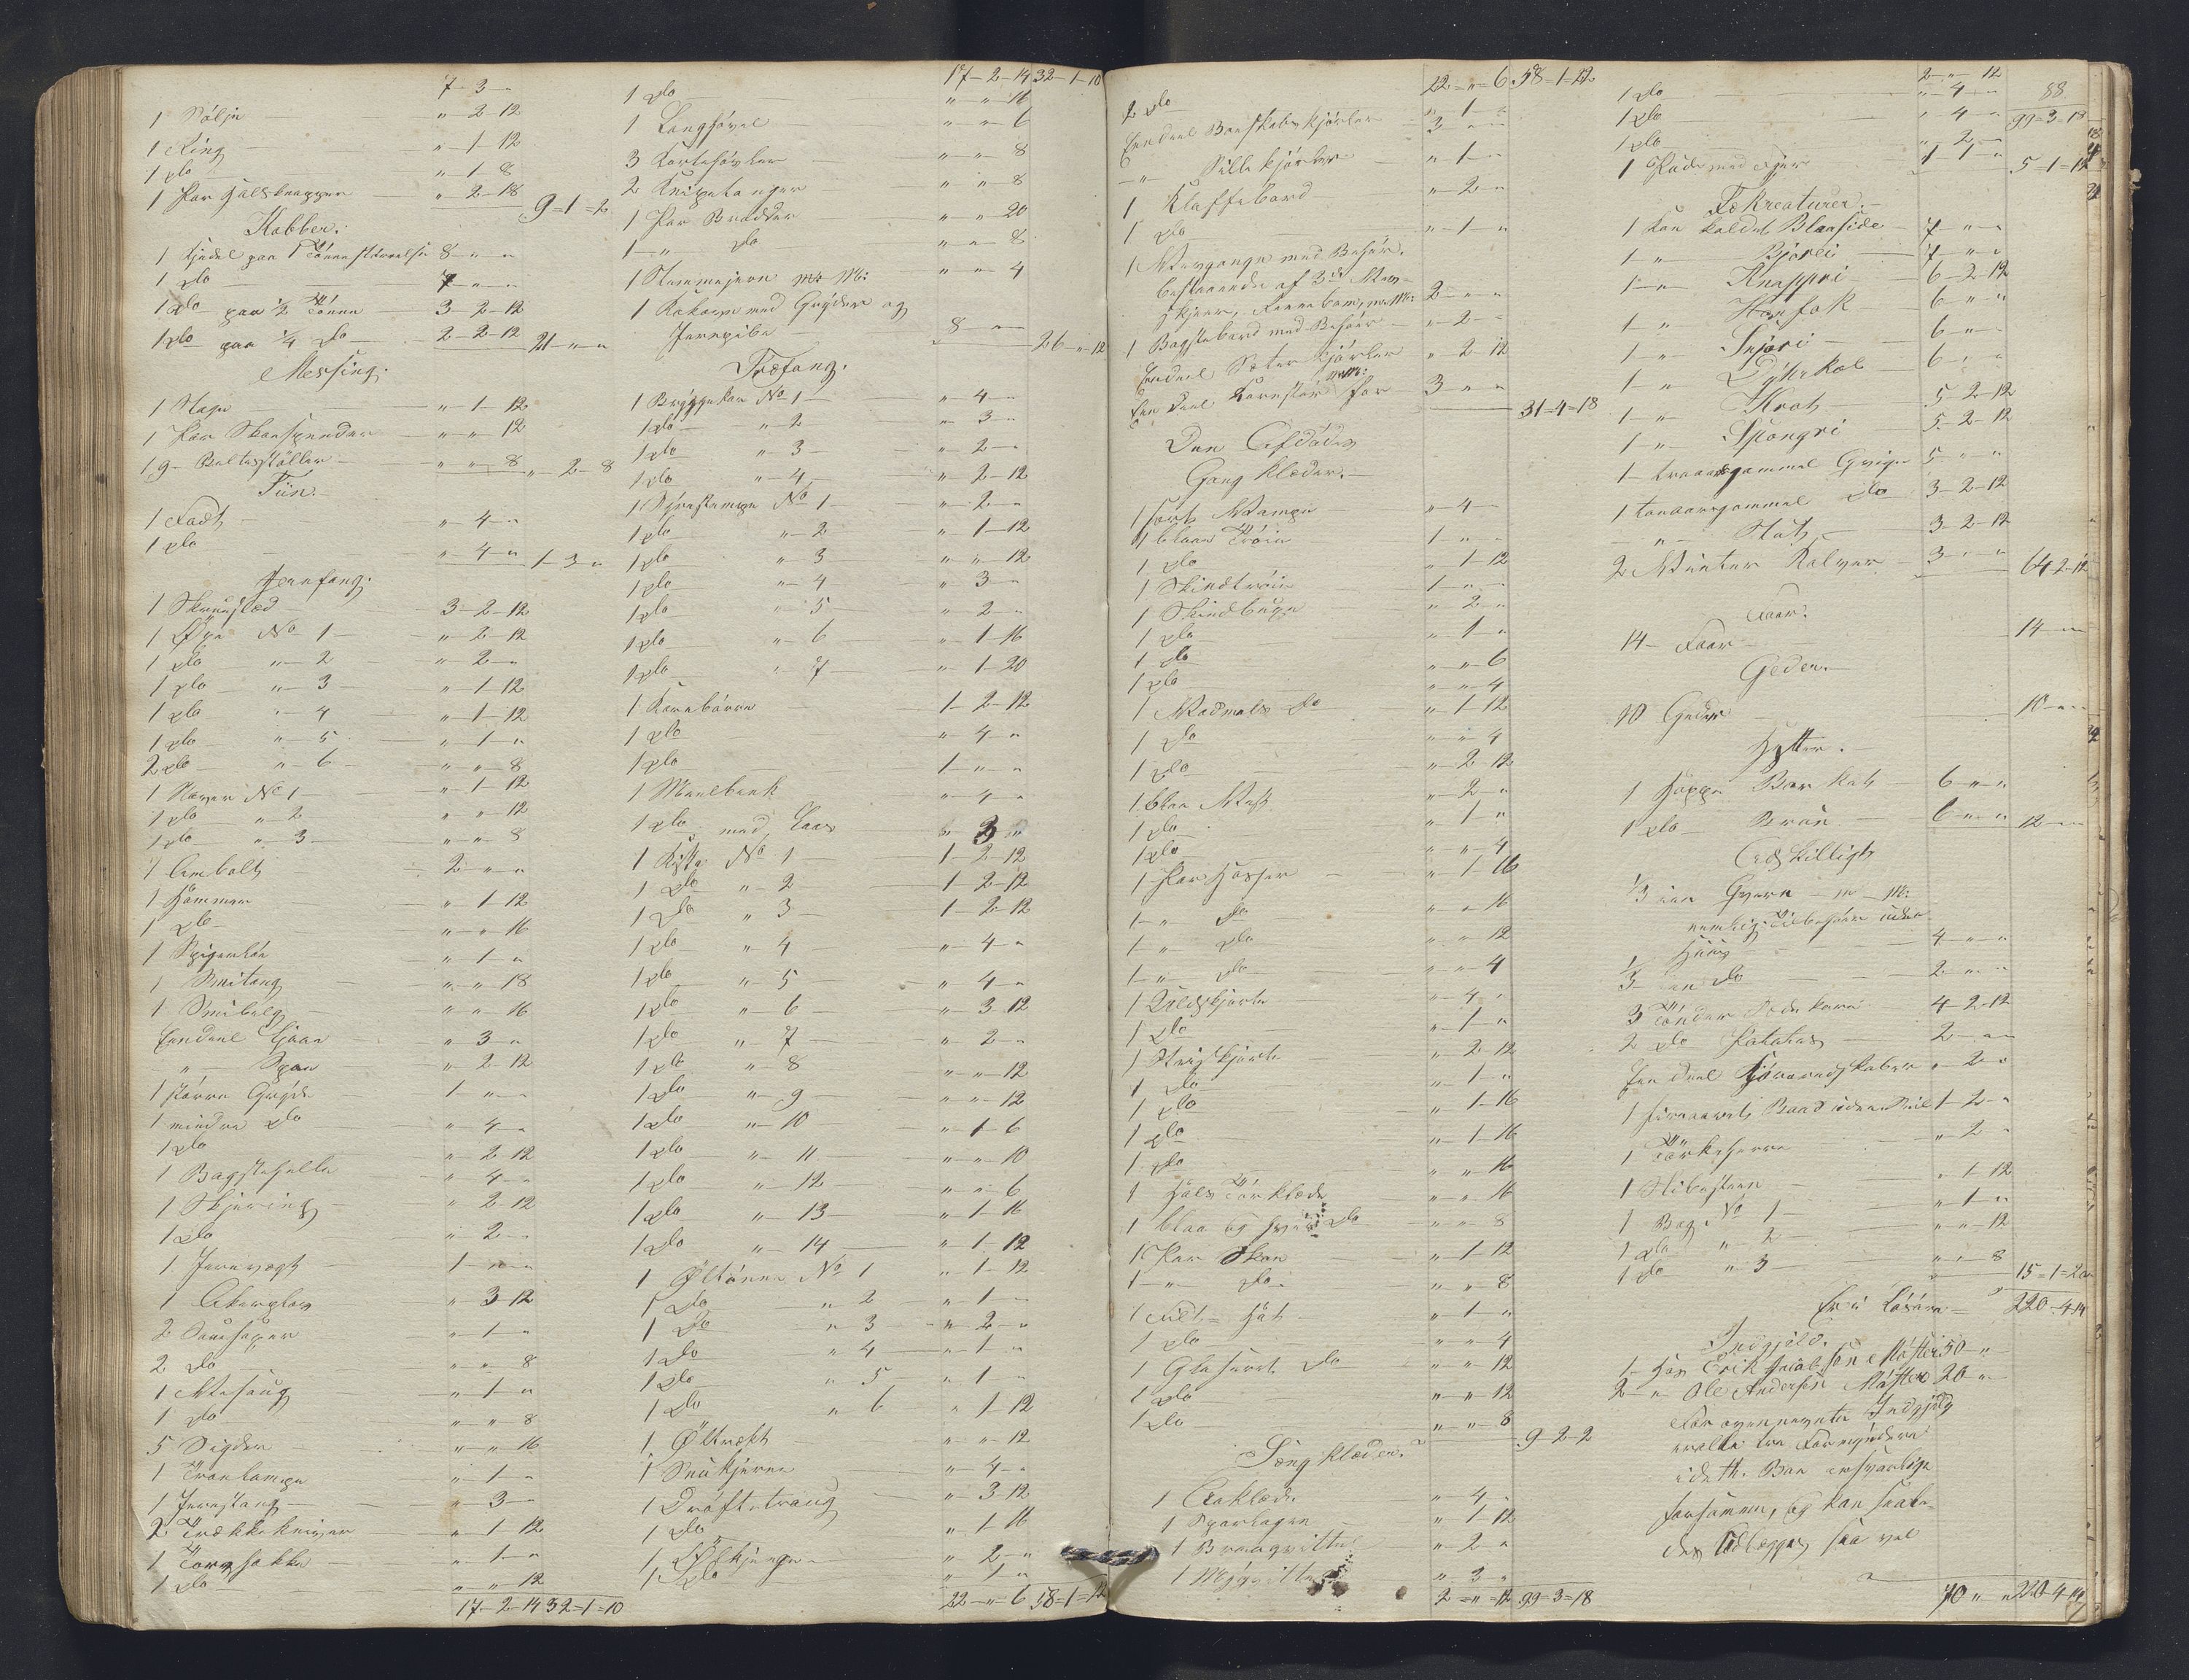 7-3-"
1 Sølje " 2-12
1 Ring " 1-12
1 do " 1-8
1 Par Halsknapper " 2-18 9-1-2
Kobber.
1 Kjedel paa 1 Tønnestørrelse 8-"-"
1 do 7-"-"
1 do paa 1/2 Tønne 3-2-12
1 do paa 1/4 do 2-2-12 21-"-"
Messing.
1 Stage "-1-12
1 Par Skoespender "-"-12
19 Beltestøller "-"-8 "-2-8
Tin.
1 Fadt "-4-"
1 do "-4-" 1-3-"
Jernfang.
1 Skruested 3-2-12
1 Øxe No 1 "-2-12
1 do " 2 "-2-"
1 do " 3 "-1-12
1 do " 4 "-1-12
1 do " 5 "-1-"
2 do " 6 "-"-8
1 Naver No 1 "-1-12
1 do " 2 "-"-12
1 do " 3 "-"-8
1 Ambolt 2-"-"
1 Hammer "-1-12
1 do "-"-16
1 "-1-"
1 Smitang "-"-18
1 Smibelg "-"-16
Eendeel Ljaar "-3-"
" "-2-12
1 større Gryde 1-"-"
1 mindre do "-4-"
1 do "-2-12
1 Bagstehelle "-4-"
1 Skjæring "-2-12
1 do "-2-"
1 Jernvægt 1-"-"
1 Akerplog "-3-12
2 Sauesaxer "-1-"
2 do "-"-8
1 "-1-"
1 do "-"-8
5 Sigder "-"-16
1 Tranlampe "-1-"
1 Jernstang "-3-"
2 Trækkekniver "-1-12
1 Torvhakke "-1-"
1 do "-"-12
17-2-14 32-1-10
17-2-14 32-1-10
1 do "-"-16
1 Langhøvel "-"-6
3 Kortehøvler "-"-8
2 "-"-8
1 Par Brødder "-"-20
1-" do "-"-8
1 Stemmejern m: M: "-"-4
1 Kakovn med Gryder og
Jernpibe 8-"-" 26-"-12
Træfang.
1 Bryggekar No 1 "-4-"
1 do " 2 "-3-"
1 do " 3 "-2-"
1 do " 4 "-2-12
1 No 1 "-2-"
1 do " 2 "-1-12
1 do " 3 "-"-12
1 do " 4 "-3-"
1 do " 5 "-2-"
1 do " 6 "-1-16
1 do " 7 "-1-20
1 Kornbørre 1-2-12
1 do "-4-"
1 do 1-"-"
1 Meelbenk "-4-"
1 do med Laas "-3-"
1 Kiste No 1 1-2-12
1 do " 2 1-2-12
1 do " 3 1-2-12
1 do " 4 "-4-"
1 do " 5 "-4-"
1 do " 6 "-3-12
1 do " 7 "-2-"
1 do " 8 "-"-12
1 do " 9 "-"-12
1 do " 10 "-1-6
1 do " 11 "-"-10
1 do " 12 "-"-6
1 do " 13 "-1-16
1 do " 14 "-1-12
1 Øltønne No 1 "-1-12
1 do " 2 "-1-"
1 do " 3 "-2-"
1 do " 4 "-1-"
1 do " 5 "-1-"
1 do " 6 "-1-12
1 Øltrakt "-"-12
1 "-4-"
1 Drøftetraug "-3-12
1 do "-1-16
1 "-2-"
1 do "-1-"
22-"-6 58-1-12
22-"-6 58-1-22
2 do "-1-"
Eendeel Boeskabskjørler 3-"-"
-"- Sillekjørler "-1-"
1 Klaffebord "-2-"
1 do "-1-"
1 Vævgange med Behør.
bestaaende af 3de Væv-
skjeer, Rennebom, m: M: 2-"-"
1 Bagstebord med Behør "-2-"
Eendeel Sæterkjørler "-2-12
Een Deel m: M: for 3-"-"
31-4-18
Den Afdødes
Gang Klæder.
1 sort Vampe "-4-"
1 blaa Trøie 1-"-"
1 do "-1-12
1 Skindtrøie 1-"-"
1 Skindbuxe "-2-"
1 do "-1-"
1 do "-"-6
1 do "-"-4
1 Vadmels do "-1-12
1 do "-"-4
1 do "-2-12
1 blaa Vest "-2-"
1 do "-1-"
1 do "-"-4
1 Par Hoser "-1-16
1-" do "-"-16
1-" do "-"-12
1-" do "-"-4
1 Uldskjorte "-4-"
1 do "-1-"
1 Strieskjorte "-2-12
1 do "-1-"
1 do "-1-16
1 do "-1-16
1 do "-"-16
1 Hals Tørklæde "-"-16
1 blaa og hvid do "-"-8
1 Par Skoe "-1-12
1-" do "-"-8
1 filt-Hat "-1-"
1 do "-"-4
1 Glaseret do "-"-12
1 do "-"-12
1 do "-"-8
9-2-2
Sengklæder.
1 Aaklæde "-4-"
1 Sparlagen "-1-12
1 "-2-"
1 "-3-"
2-"-12 99-3-18
2-"-12
88
1 do "-4-" 99-3-18
1 do "-4-"
1 do "-2-"
1 Pude med Fjær "-1-" 5-1-12
Fæ Kreaturer.
1 Koe kaldet Blaaside 7-"-"
1 " Bjørlei 7-"-"
1-" Knappri 6-2-12
1 " Honfak 6-"-"
1-" Snjøri 6-"-"
1-" Dyttekol 6-"-"
1-" Krot 5-2-12
1-" Spongri 5-2-12
1 treaarsgammel Qvige 5-"-"
1 toeaarsgammel do 3-2-12
-"- Stut 3-2-12
2 Vinter Kalver 3-"-" 64-2-12
Faar.
14 Faar 14-"-"
Geder.
10 Geder 10-"-"
Hester.
1 Hoppe Borket 6-"-"
1 do Brun 6-"-" 12-"-"
Adskilligt
1/3 i en Qvern m M:
nemlig Tilbehør uden
Huus 4-"-"
1/3 i en do 2-"-"
3 Tønder Sædekorn 4-2-12
2 do Potetes 2-"-"
Een Deel Kjøreredskaber "-2-"
1 Baad uden Seil 1-2-"
1 "-2-"
1 Slibesteen "-1-12
1 Bog No 1 "-1-"
1 do " 2 "-"-12
1 do " 3 "-"-8
15-1-20
Er i Løsøre = 220-4-14
Indgjæld.
1- Hos Erik Møster 50-"
2- " Ole Anderssen Møster 20-"
For ovennevnte Indgjæld
ere alle tre Formyndere
i dette Boe ansvarlige
forsammen, og kan saale-
des udlægges saa vel
70-"-" 220-4-14